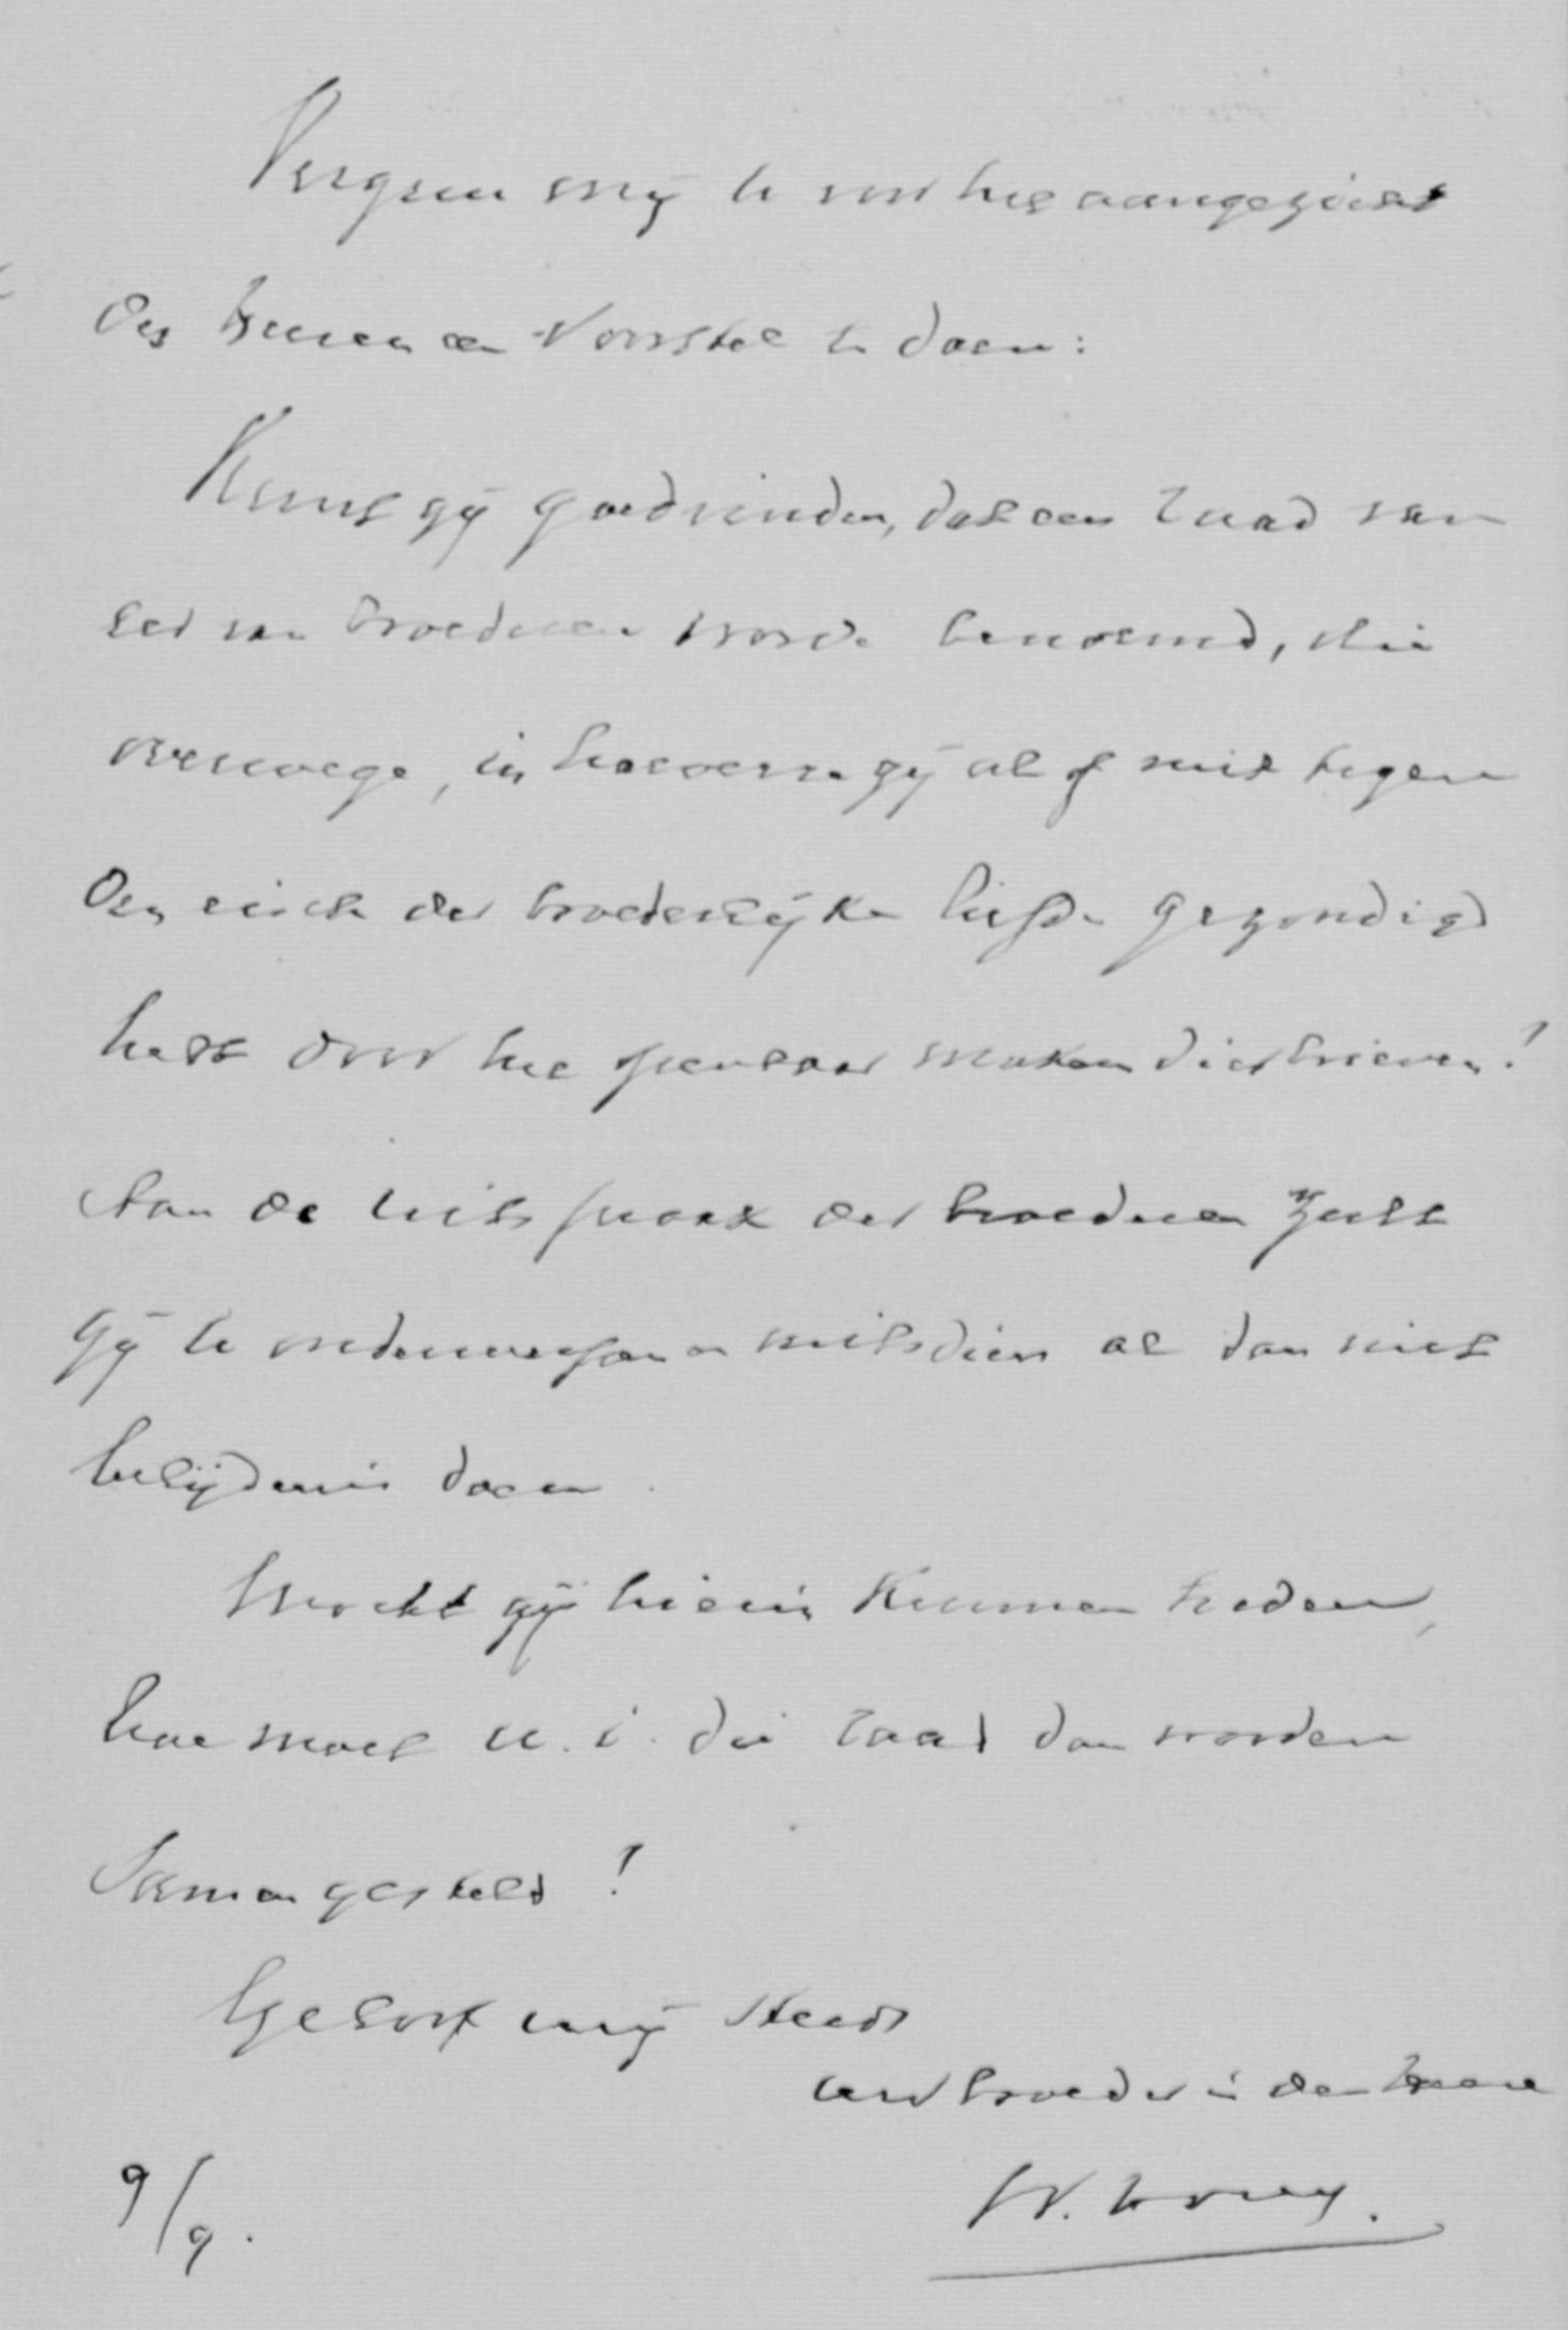 Vergun mij U voor het aangezicht
des Heeren een voorstel te doen:
Kunt gij goedvinden, dat een raad van
broederen worde benoemd, die
overwege, in hoeverre gij al of niet tegen
den eisch der broederlijke liefde gezondigd
hebt door het openbaar maken dier brieven?
Aan de uitspraak der broederen zult
gij U onderwerpen en mitsdien al dan niet
belijdenis doen.
Mocht gij hierin kunnen treden,
hoe moet u. i. die raad dan worden
Samengesteld?
Geloof mij steeds
uw broeder in den Heere
9/9.